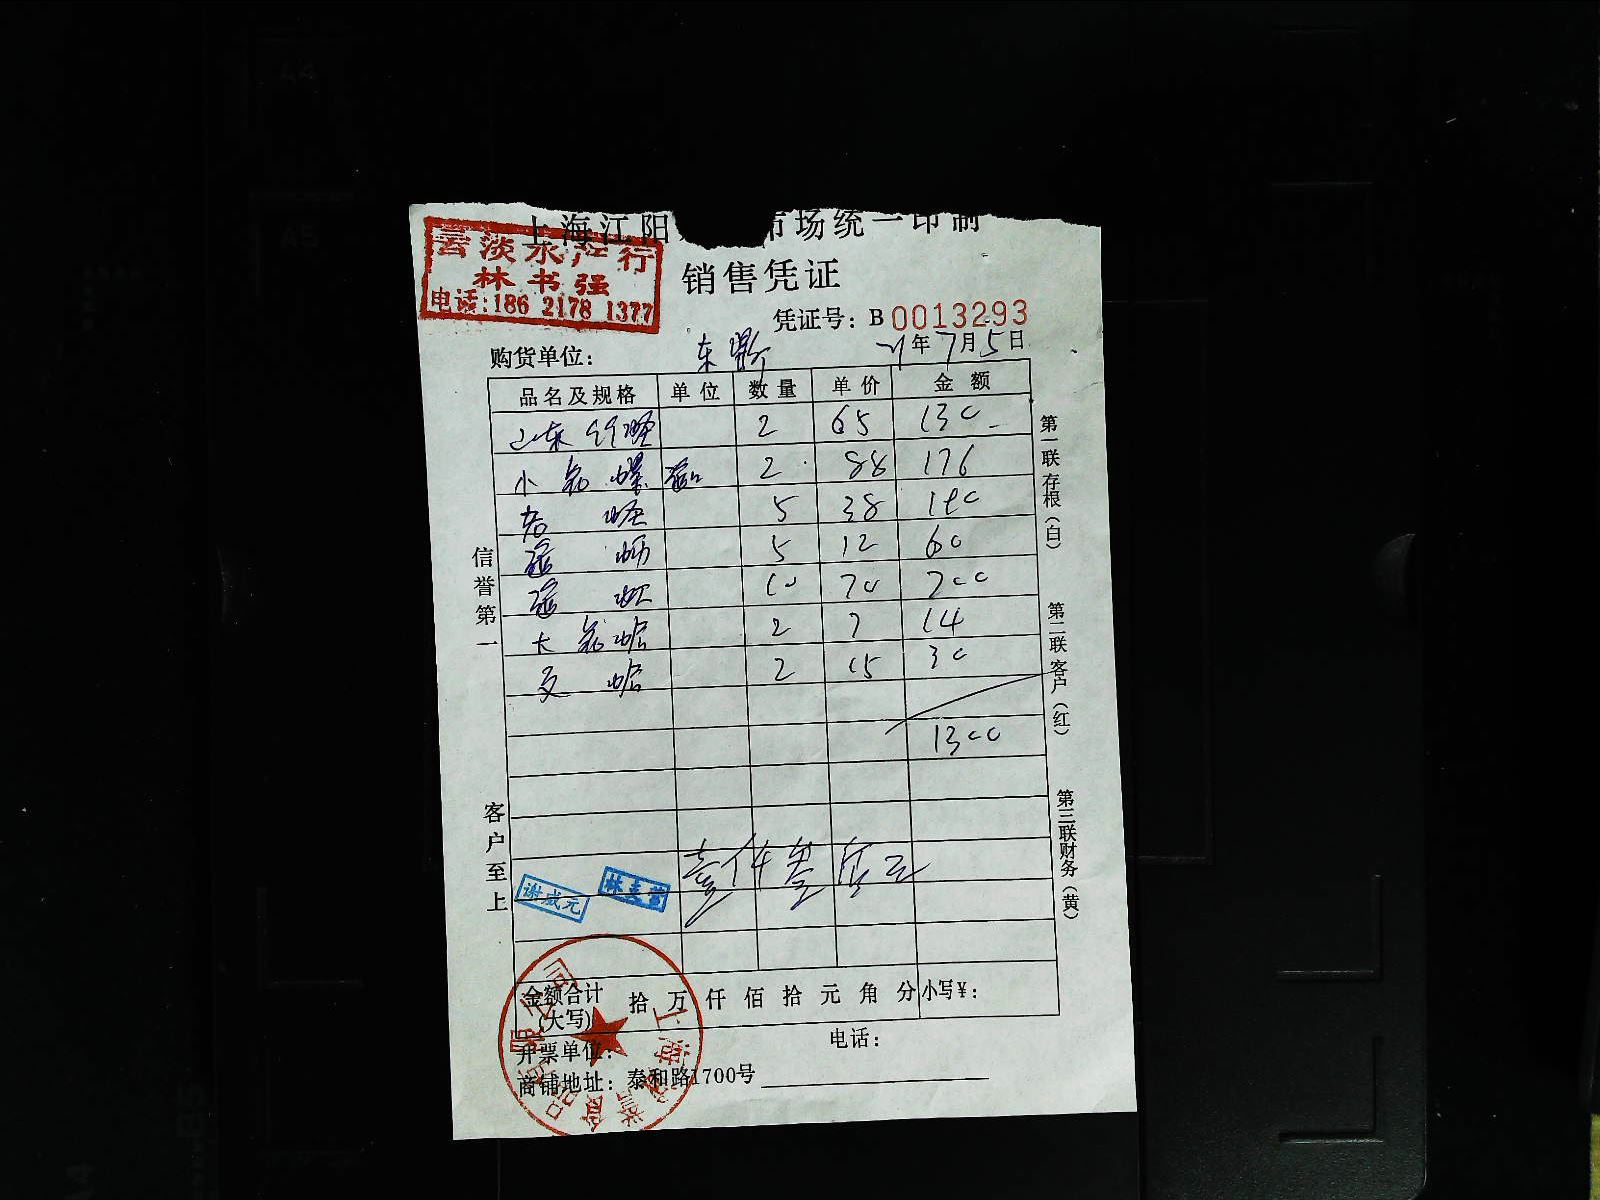 上海江阳 市场统一印制
云淡水产行
林书强
电话:186 2178 1377
销售凭证
凭证号: B 0013293
购货单位: 东 21年7月5日
品名及规格 单位 数量 单价 金额
山东蛏 2 65 130
小 螺 2 88 176
蛏 5 38 190
5 12 60
虹 10 70 700
大 蛤 2 7 14
蛤 2 15 30
1300
壹仟叁佰元
谢成元
信誉第一
客户至上
第一联存根(白)
第二联客户(红)
第三联财务(黄)
金额合计(大写) 拾 万 仟 佰 拾 元 角 分 小写¥:
开票单位: 电话:
商铺地址: 泰和路1700号